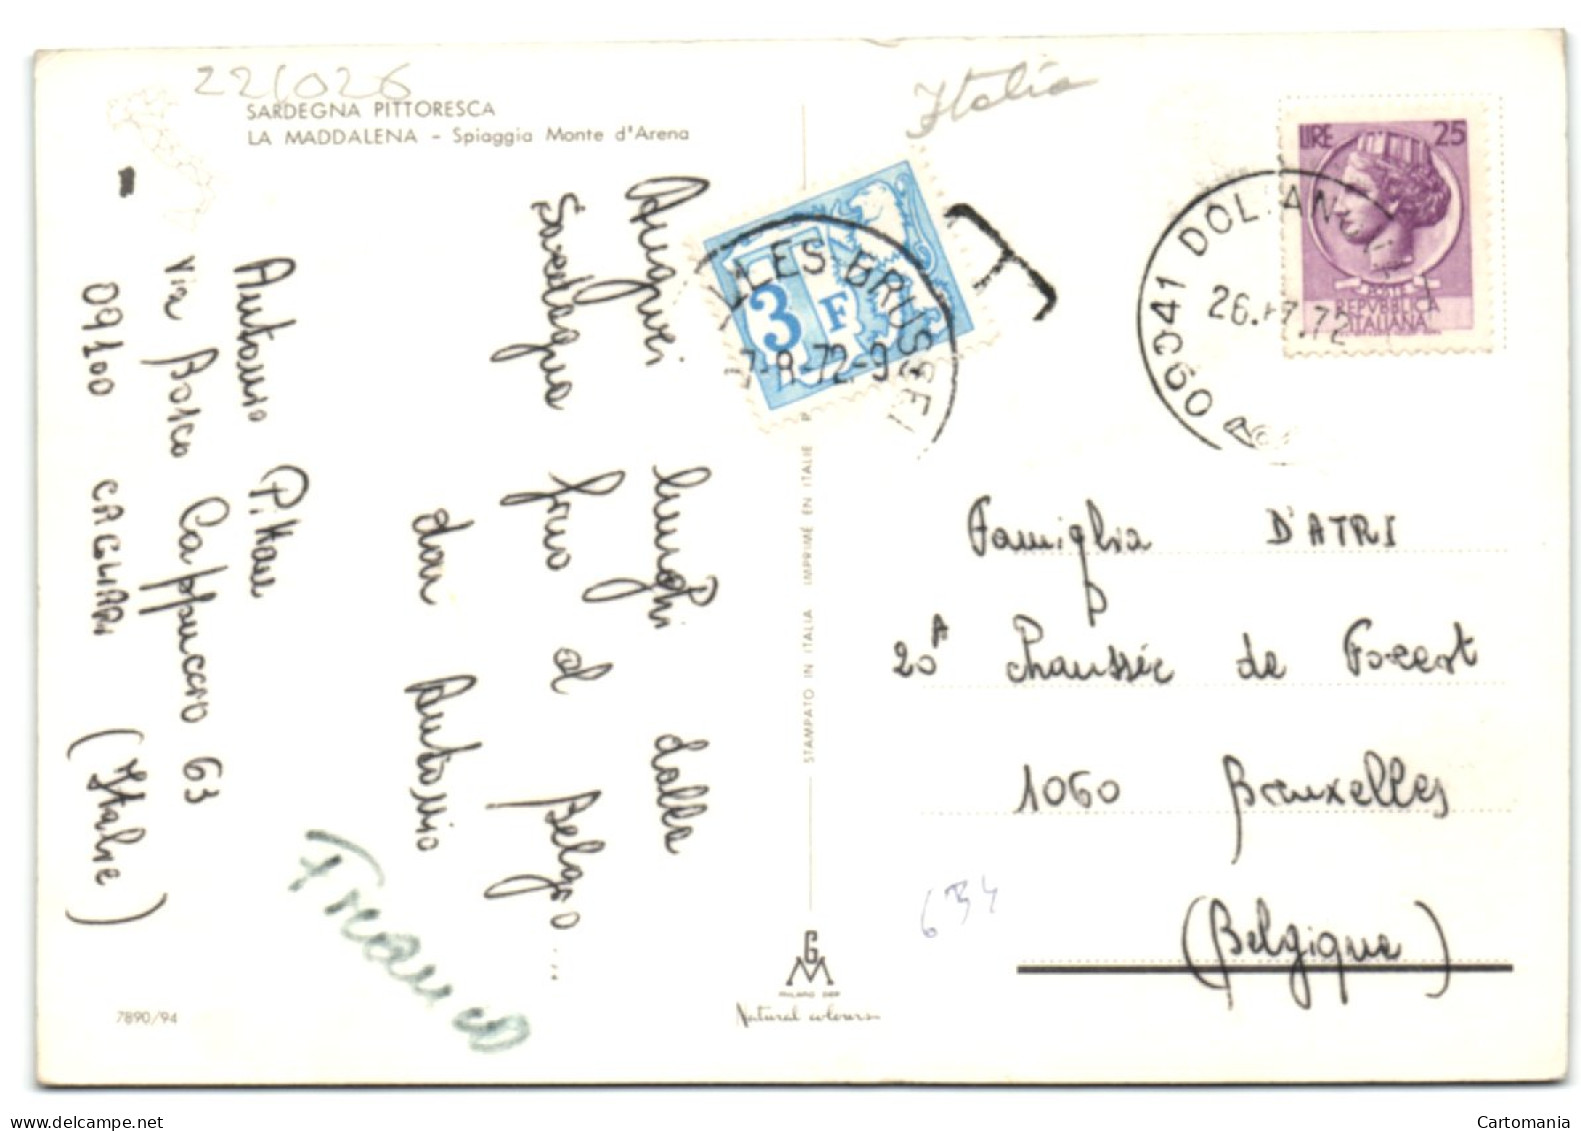 221026
SARDEGNA PITTORESCA
LA MADDALENA - Spiaggia Monte d'Arena
Italia
Auguri lunghi dalla
Sardegna fino al Belgio...
don Antonio
Antonio
Via Bosco Cappuccio 63
09100 CAGLIARI (Italie)
Franco
3 F
T
BRUSSEL
LIRE 25
POSTE
REPVBBLICA
ITALIANA
09041 DOLIANOVA
26.
72
STAMPATO IN ITALIA IMPRIMÉ EN ITALIE
Famiglia D'ATRI
20A Chaussée de Forest
1060 Bruxelles
(Belgique)
GM
Natural colours
7890/94
delcampe.net
Cartomania